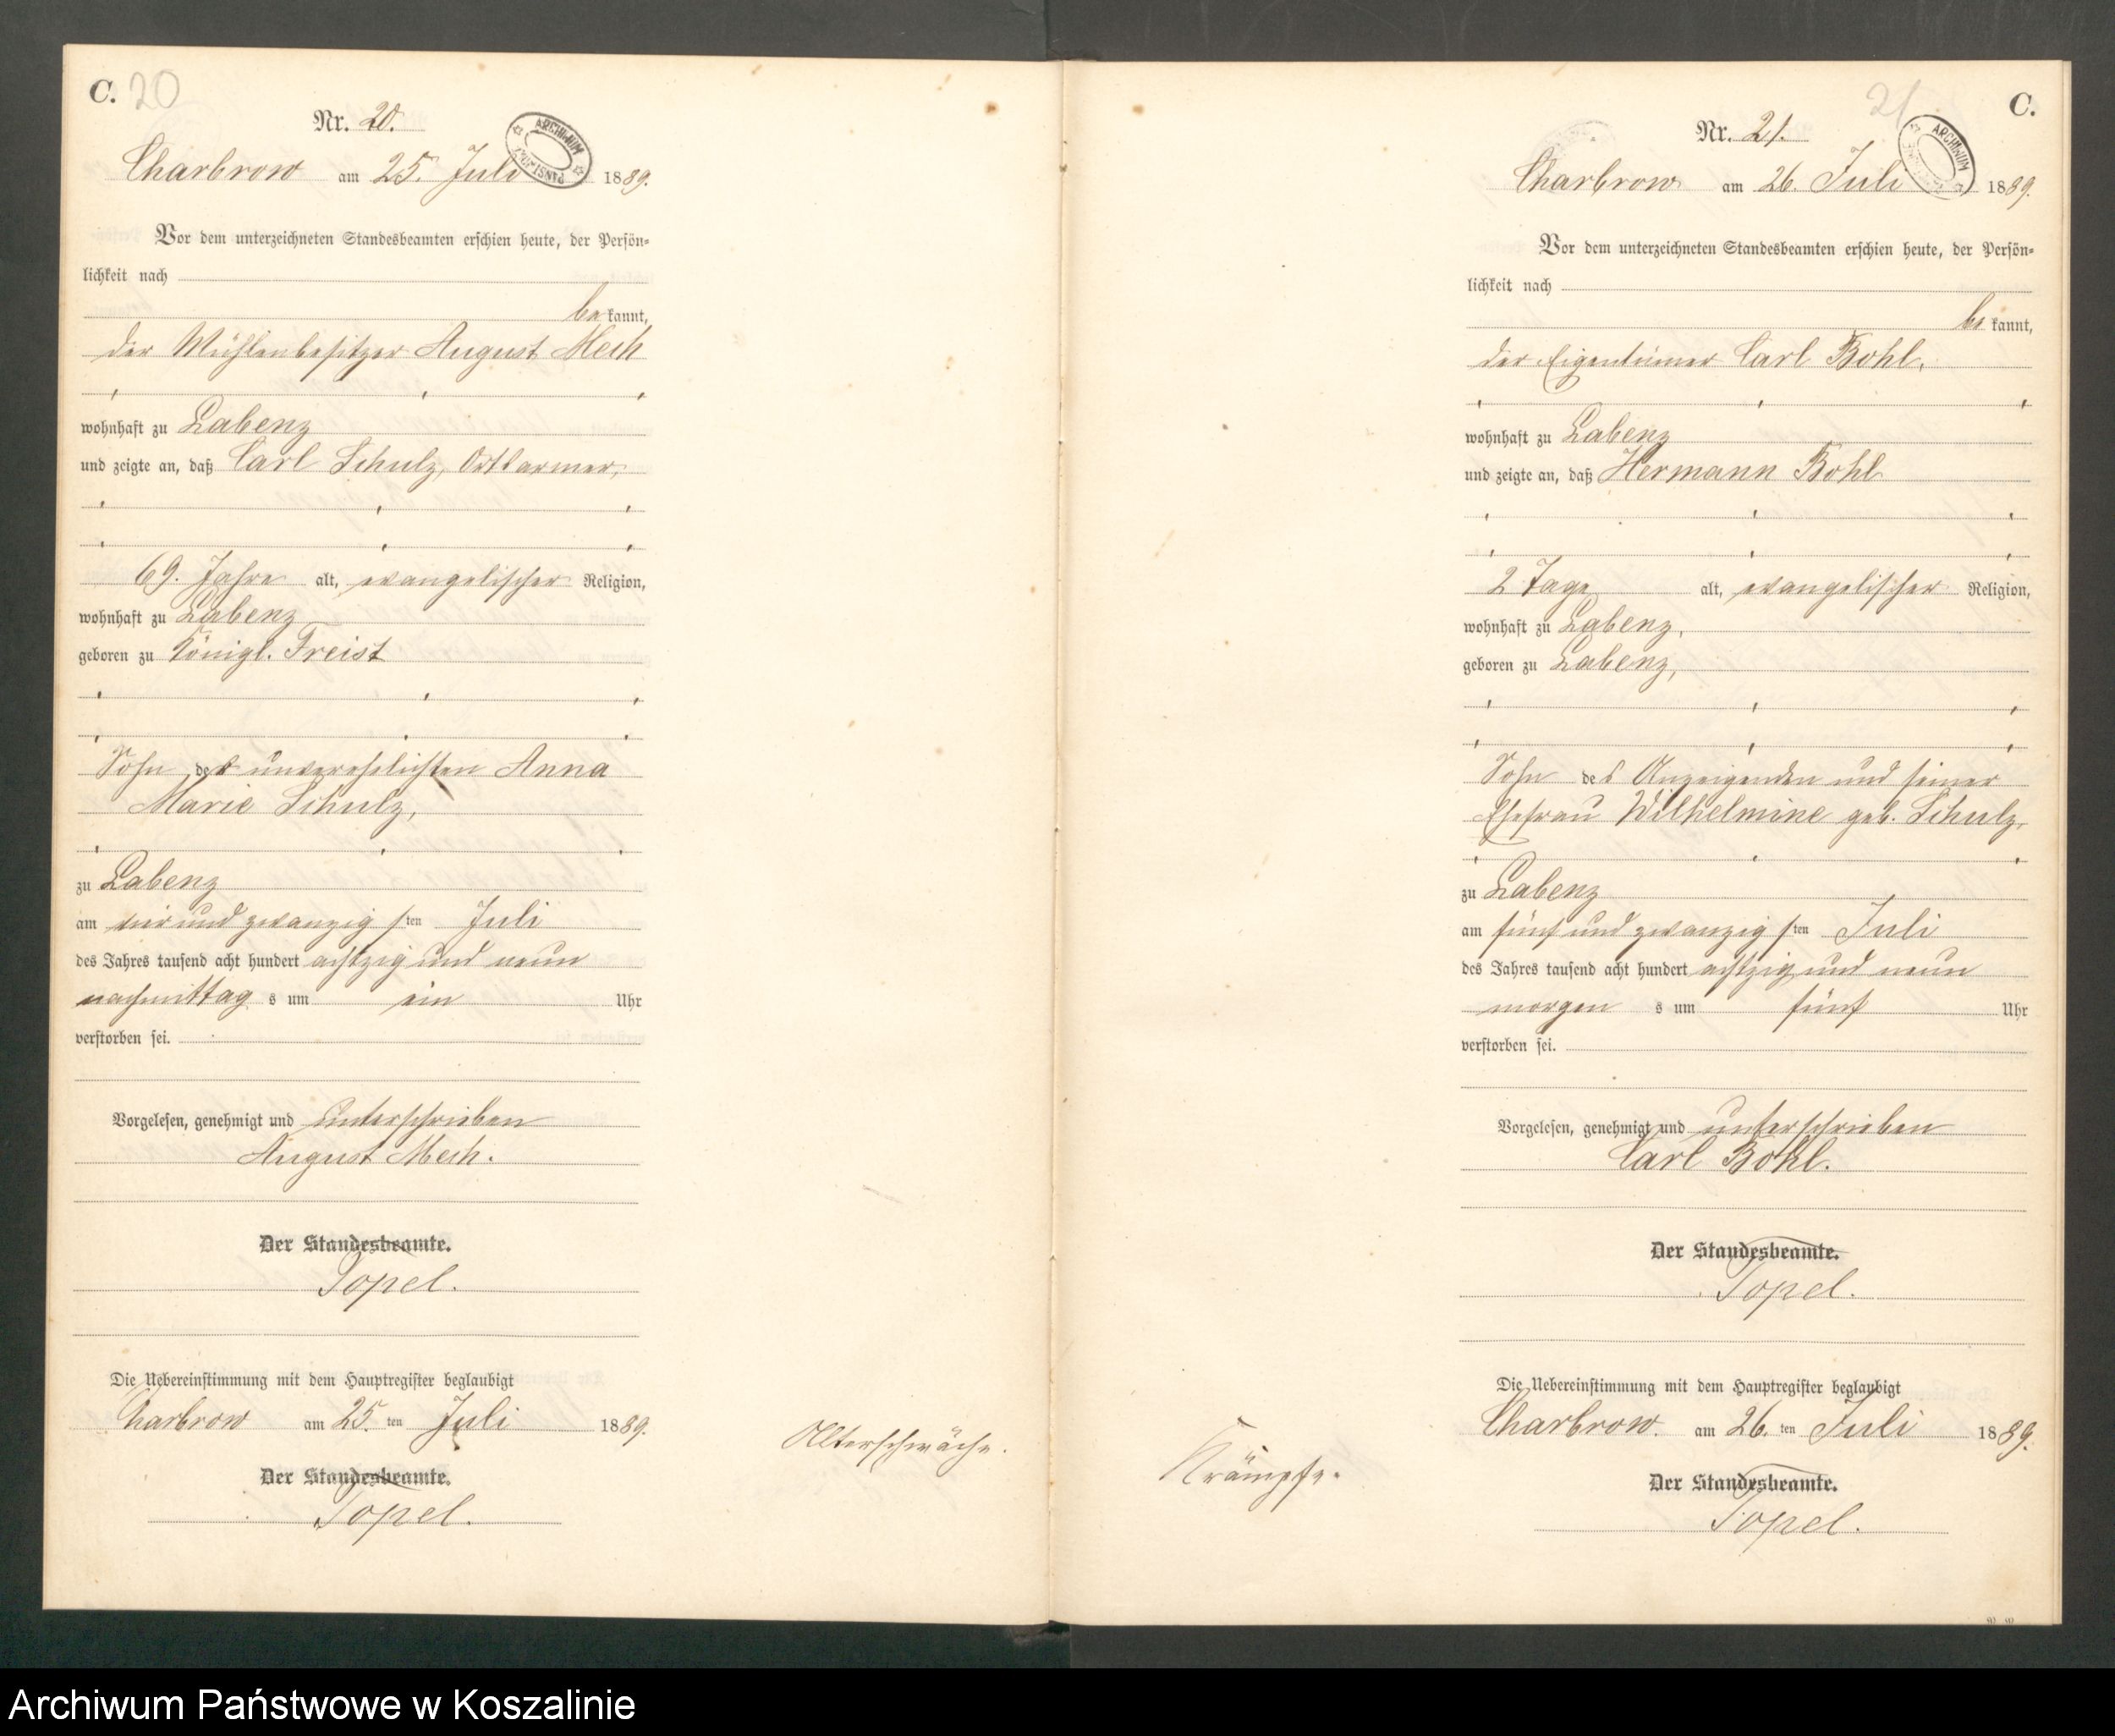 C. 20
Nr. 20.
ARCHIWUM PAŃSTWOWE
Charbrow am 25. Juli 1889.
Vor dem unterzeichneten Standesbeamten erschien heute, der Persön-
lichkeit nach
bekannt,
der Mühlenbesitzer August Mech
wohnhaft zu Labenz
und zeigte an, daß Carl Schulz, Ortsarmer,
69. Jahre alt, evangelischer Religion,
wohnhaft zu Labenz
geboren zu Königl. Freist
Sohn der unverehelichten Anna
Marie Schulz,
zu Labenz
am vier und zwanzigsten Juli
des Jahres tausend acht hundert achtzig und neun
nachmittags um ein Uhr
verstorben sei.
Vorgelesen, genehmigt und unterschrieben
August Mech.
Der Standesbeamte.
Topel.
Die Uebereinstimmung mit dem Hauptregister beglaubigt
Charbrow am 25.ten Juli 1889.
Der Standesbeamte.
Topel.
Altersschwäche.
21 C.
Nr. 21.
ARCHIWUM
Charbrow am 26. Juli 1889.
Vor dem unterzeichneten Standesbeamten erschien heute, der Persön-
lichkeit nach
bekannt,
der Eigentümer Carl Bohl,
wohnhaft zu Labenz
und zeigte an, daß Hermann Bohl
2 Tage alt, evangelischer Religion,
wohnhaft zu Labenz,
geboren zu Labenz,
Sohn des Anzeigenden und seiner
Ehefrau Wilhelmine geb. Schulz,
zu Labenz
am fünf und zwanzigsten Juli
des Jahres tausend acht hundert achtzig und neun
morgens um fünf Uhr
verstorben sei.
Vorgelesen, genehmigt und unterschrieben
Carl Bohl.
Der Standesbeamte.
Topel.
Die Uebereinstimmung mit dem Hauptregister beglaubigt
Charbrow. am 26.ten Juli 1889.
Der Standesbeamte.
Topel.
Krämpfe.
Archiwum Państwowe w Koszalinie